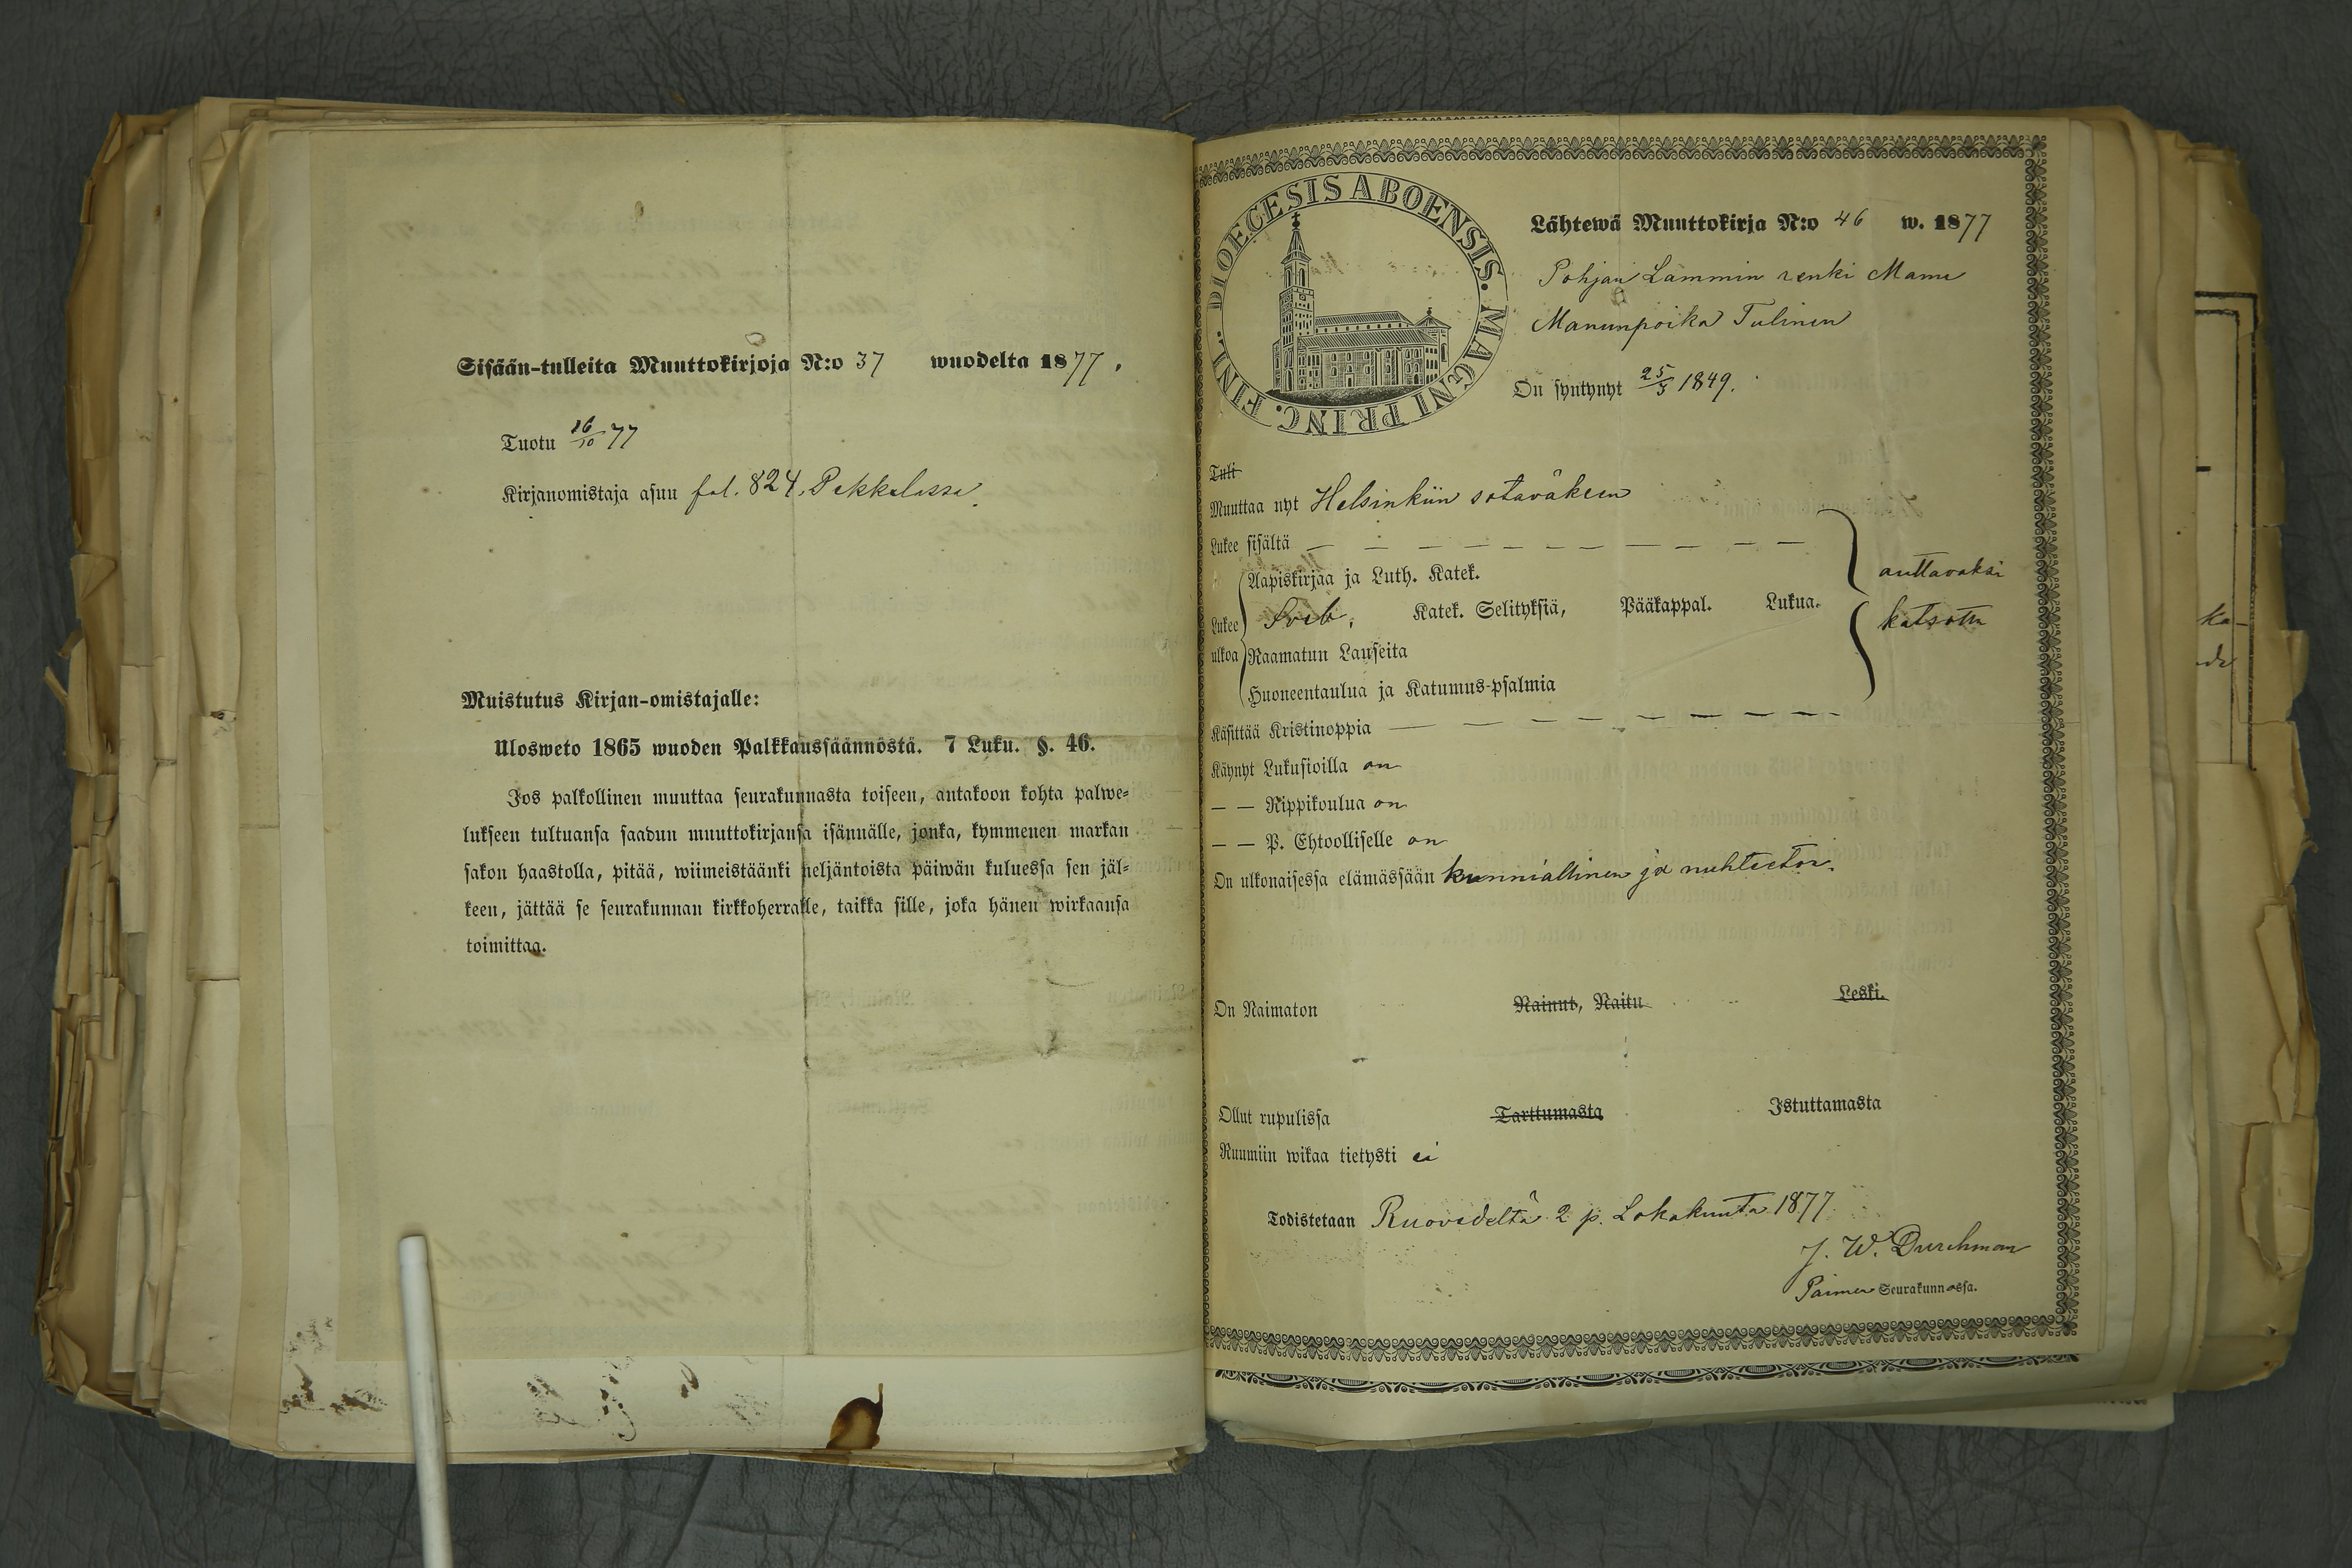 Sisään-tulleita Muuttokirjoja N:o 37 wuodelta 1877.
Tuotu 16/10 77
Kirjanomistaja asuu fol. 824, Pekkalassa
Muistutus Kirjan-omistajalle:
Ulosweto 1865 wuoden Palkkaussäännöstä. 7 Luku. §. 46.
Jos palkollinen muuttaa seurakunnasta toiseen, antakoon kohta palwe-
lukseen tultuansa saadun muuttokirjansa isännälle, jonka, kymmenen markan
sakon haastolla, pitää, wiimeistäänki neljäntoista päiwän kuluessa sen jäl-
keen, jättää se seurakunnan kirkkoherralle, taikka sille, joka hänen wirkaansa
toimittaa.
DIOECESIS ABOENSIS. MAGNI PRINC. FINL.
Lähtewä Muuttokirja N:o 46 w. 1877
Pohjan Lammin renki Manu
Manunpoika Tulinen
On syntynyt 25/5 1849.
Tuli
Muuttaa nyt Helsinkiin sotaväkeen
Lukee sisältä — — — — — — — — — —
Lukee ulkoa
Aapiskirjaa ja Luth. Katek.
Sveb. Katek. Selityksiä, Pääkappal. Lukua.
Raamatun Lauseita
Huoneentaulua ja Katumus-psalmia
auttavaksi
katsottu
Käsittää Kristinoppia — — — — — — — —
Käynyt Lukusioilla on
— — Rippikoulua on
— — P. Ehtoolliselle on
On ulkonaisessa elämässään kunniallinen ja nuhteeton.
On Naimaton Nainut, Naitu Leski.
Ollut rupulissa Tarttumasta Istuttamasta
Ruumiin wikaa tietysti ei
Todistetaan Ruovedeltä 2 p. Lokakuuta 1877
J. W. Durchman
Seurakunnassa.
ka-